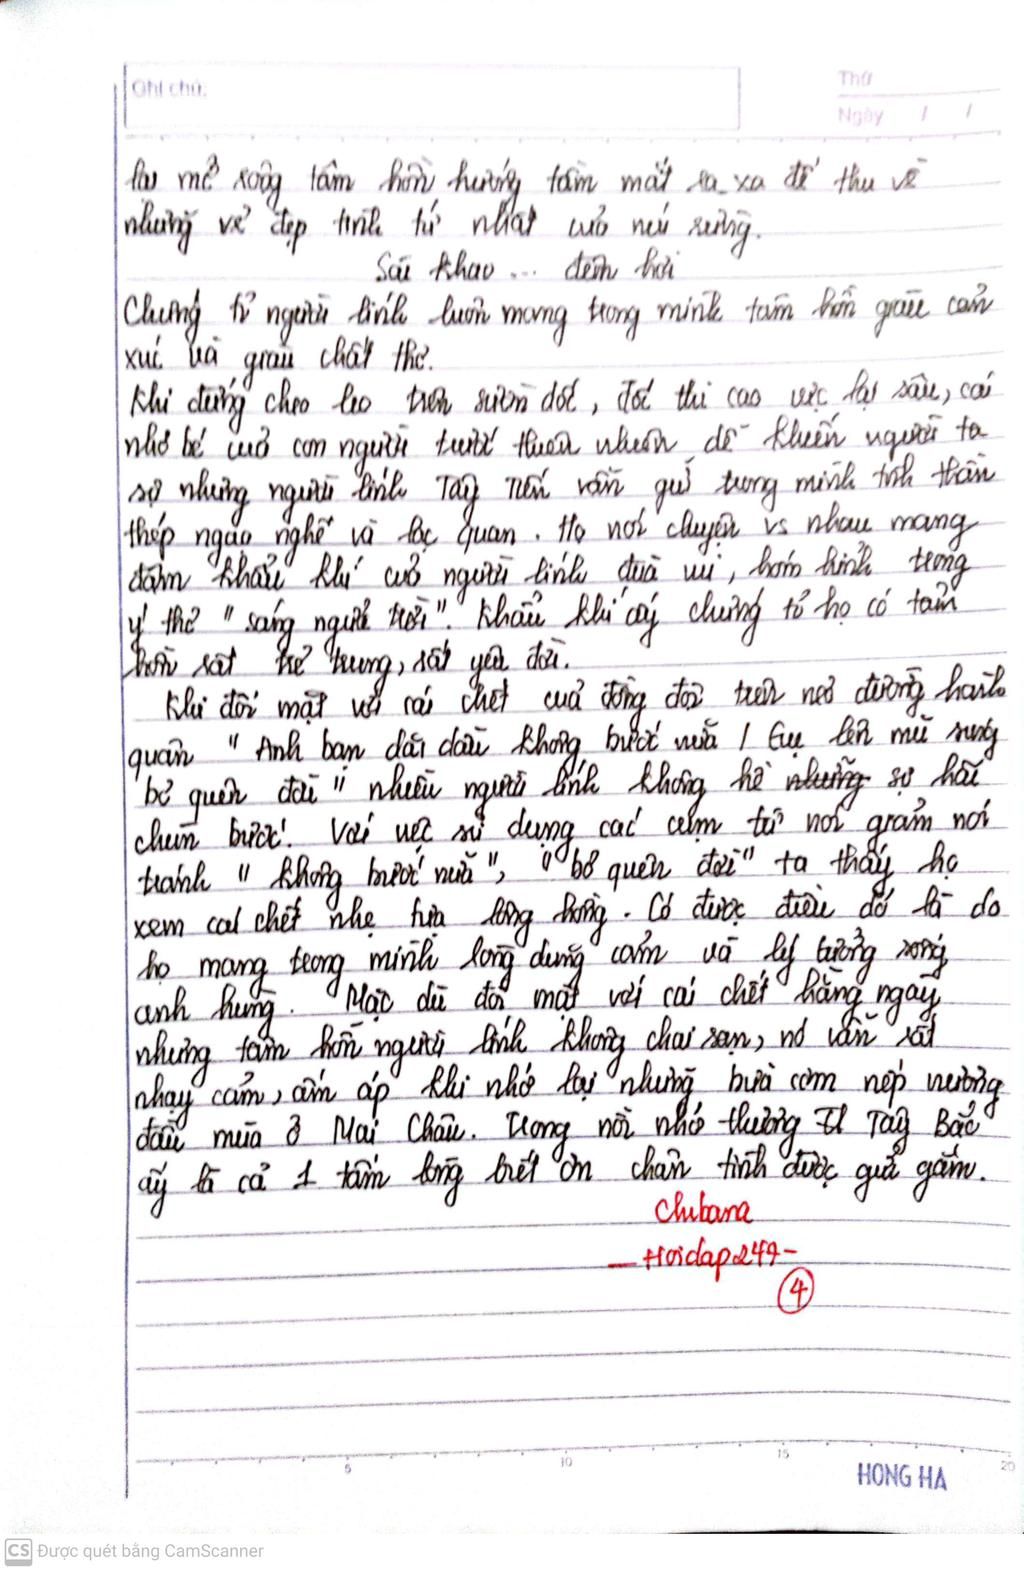 Ghi chú:
Thứ
Ngày / /
lại mở rộng tâm hồn hướng tầm mắt ra xa để thu về
những vẻ đẹp tinh tú nhất của núi rừng.
Sài Khao ... đêm hơi
Chứng tỏ người lính luôn mang trong mình tâm hồn giàu cảm
xúc và giàu chất thơ.
Khi đứng cheo leo trên sườn dốc, dốc thì cao vực lại sâu, cái
nhỏ bé của con người trước thiên nhiên dễ khiến người ta
sợ nhưng người lính Tây Tiến vẫn giữ trong mình tinh thần
thép ngạo nghễ và lạc quan. Họ nói chuyện vs nhau mang
đậm khẩu khí của người lính đùa vui, hóm hỉnh trong
ý thơ "súng ngửi trời". Khẩu khí ấy chứng tỏ họ có tâm
hồn rất trẻ trung, rất yêu đời.
Khi đối mặt với cái chết của đồng đội trên nẻo đường hành
quân "Anh bạn dãi dầu không bước nữa / Gục lên mũ súng
bỏ quên đời" nhiều người lính không hề những sợ hãi
chùn bước. Với việc sử dụng các cụm từ nói giảm nói
tránh "không bước nữa", "bỏ quên đời" ta thấy họ
xem cái chết nhẹ tựa lông hồng. Có được điều đó là do
họ mang trong mình lòng dũng cảm và lý tưởng sống
anh hùng. Mặc dù đối mặt với cái chết hằng ngày
nhưng tâm hồn người lính không chai sạn, nó vẫn rất
nhạy cảm, ấm áp khi nhớ lại những bữa cơm nếp nương
đầu mùa ở Mai Châu. Trong nỗi nhớ thương Tây Bắc
ấy là cả 1 tấm lòng biết ơn chân tình được gửi gắm.
Chibana
— Hoidap247 –
4
5 10 15 20
HONG HA
CS Được quét bằng CamScanner